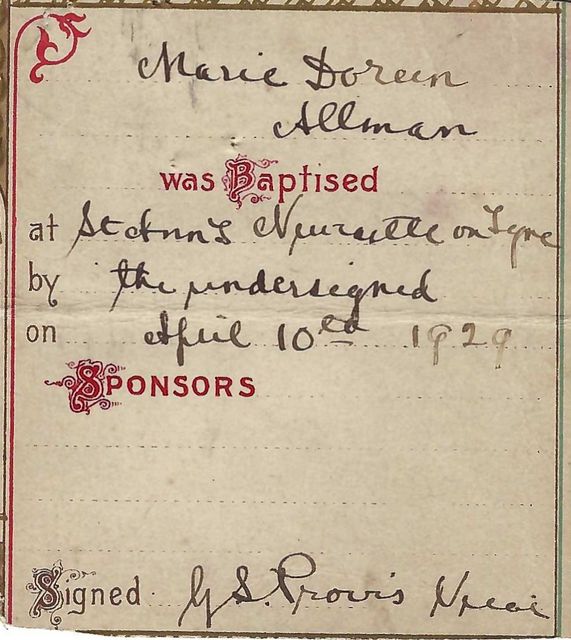 Marie Doreen
Allman
was Baptised
at St Ann's Newcastle on Tyne
by the undersigned
on April 10th 1929
SPONSORS
Signed G S. Provis Vicar